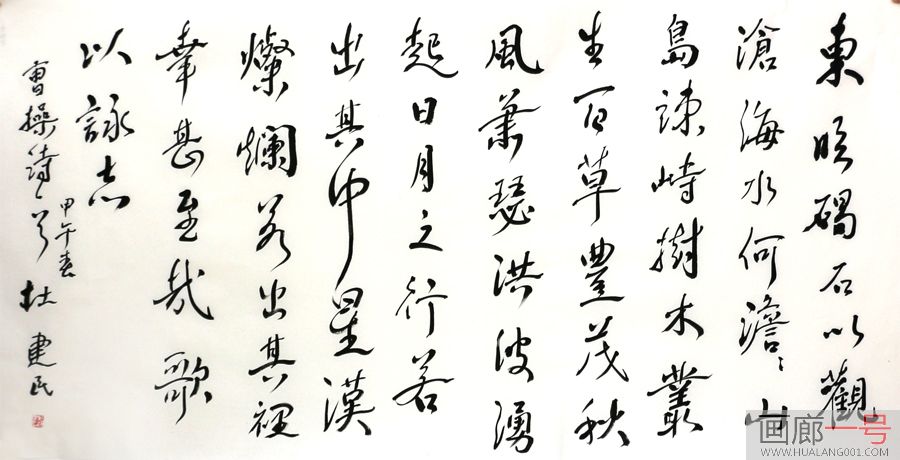 東臨碣石以觀
滄海水何澹々山
島竦峙樹木叢
生百草豐茂秋
風蕭瑟洪波湧
起日月之行若
出其中星漢
燦爛若出其裡
幸甚至哉歌
以詠志
曹操詩一首
甲午春
杜建民
画廊一号
WWW.HUALANG001.COM